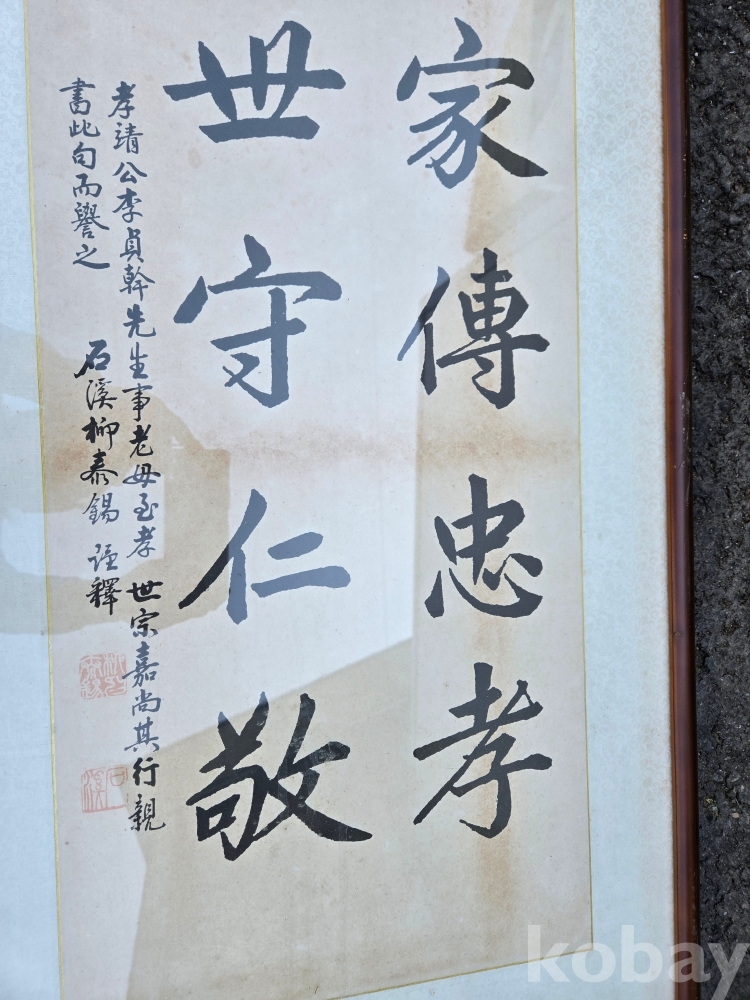 家傳忠孝
世守仁敬
孝靖公李貞幹先生事老母至孝 世宗嘉尚其行親
書此句而譽之
石溪柳泰錫 謹釋
kobay